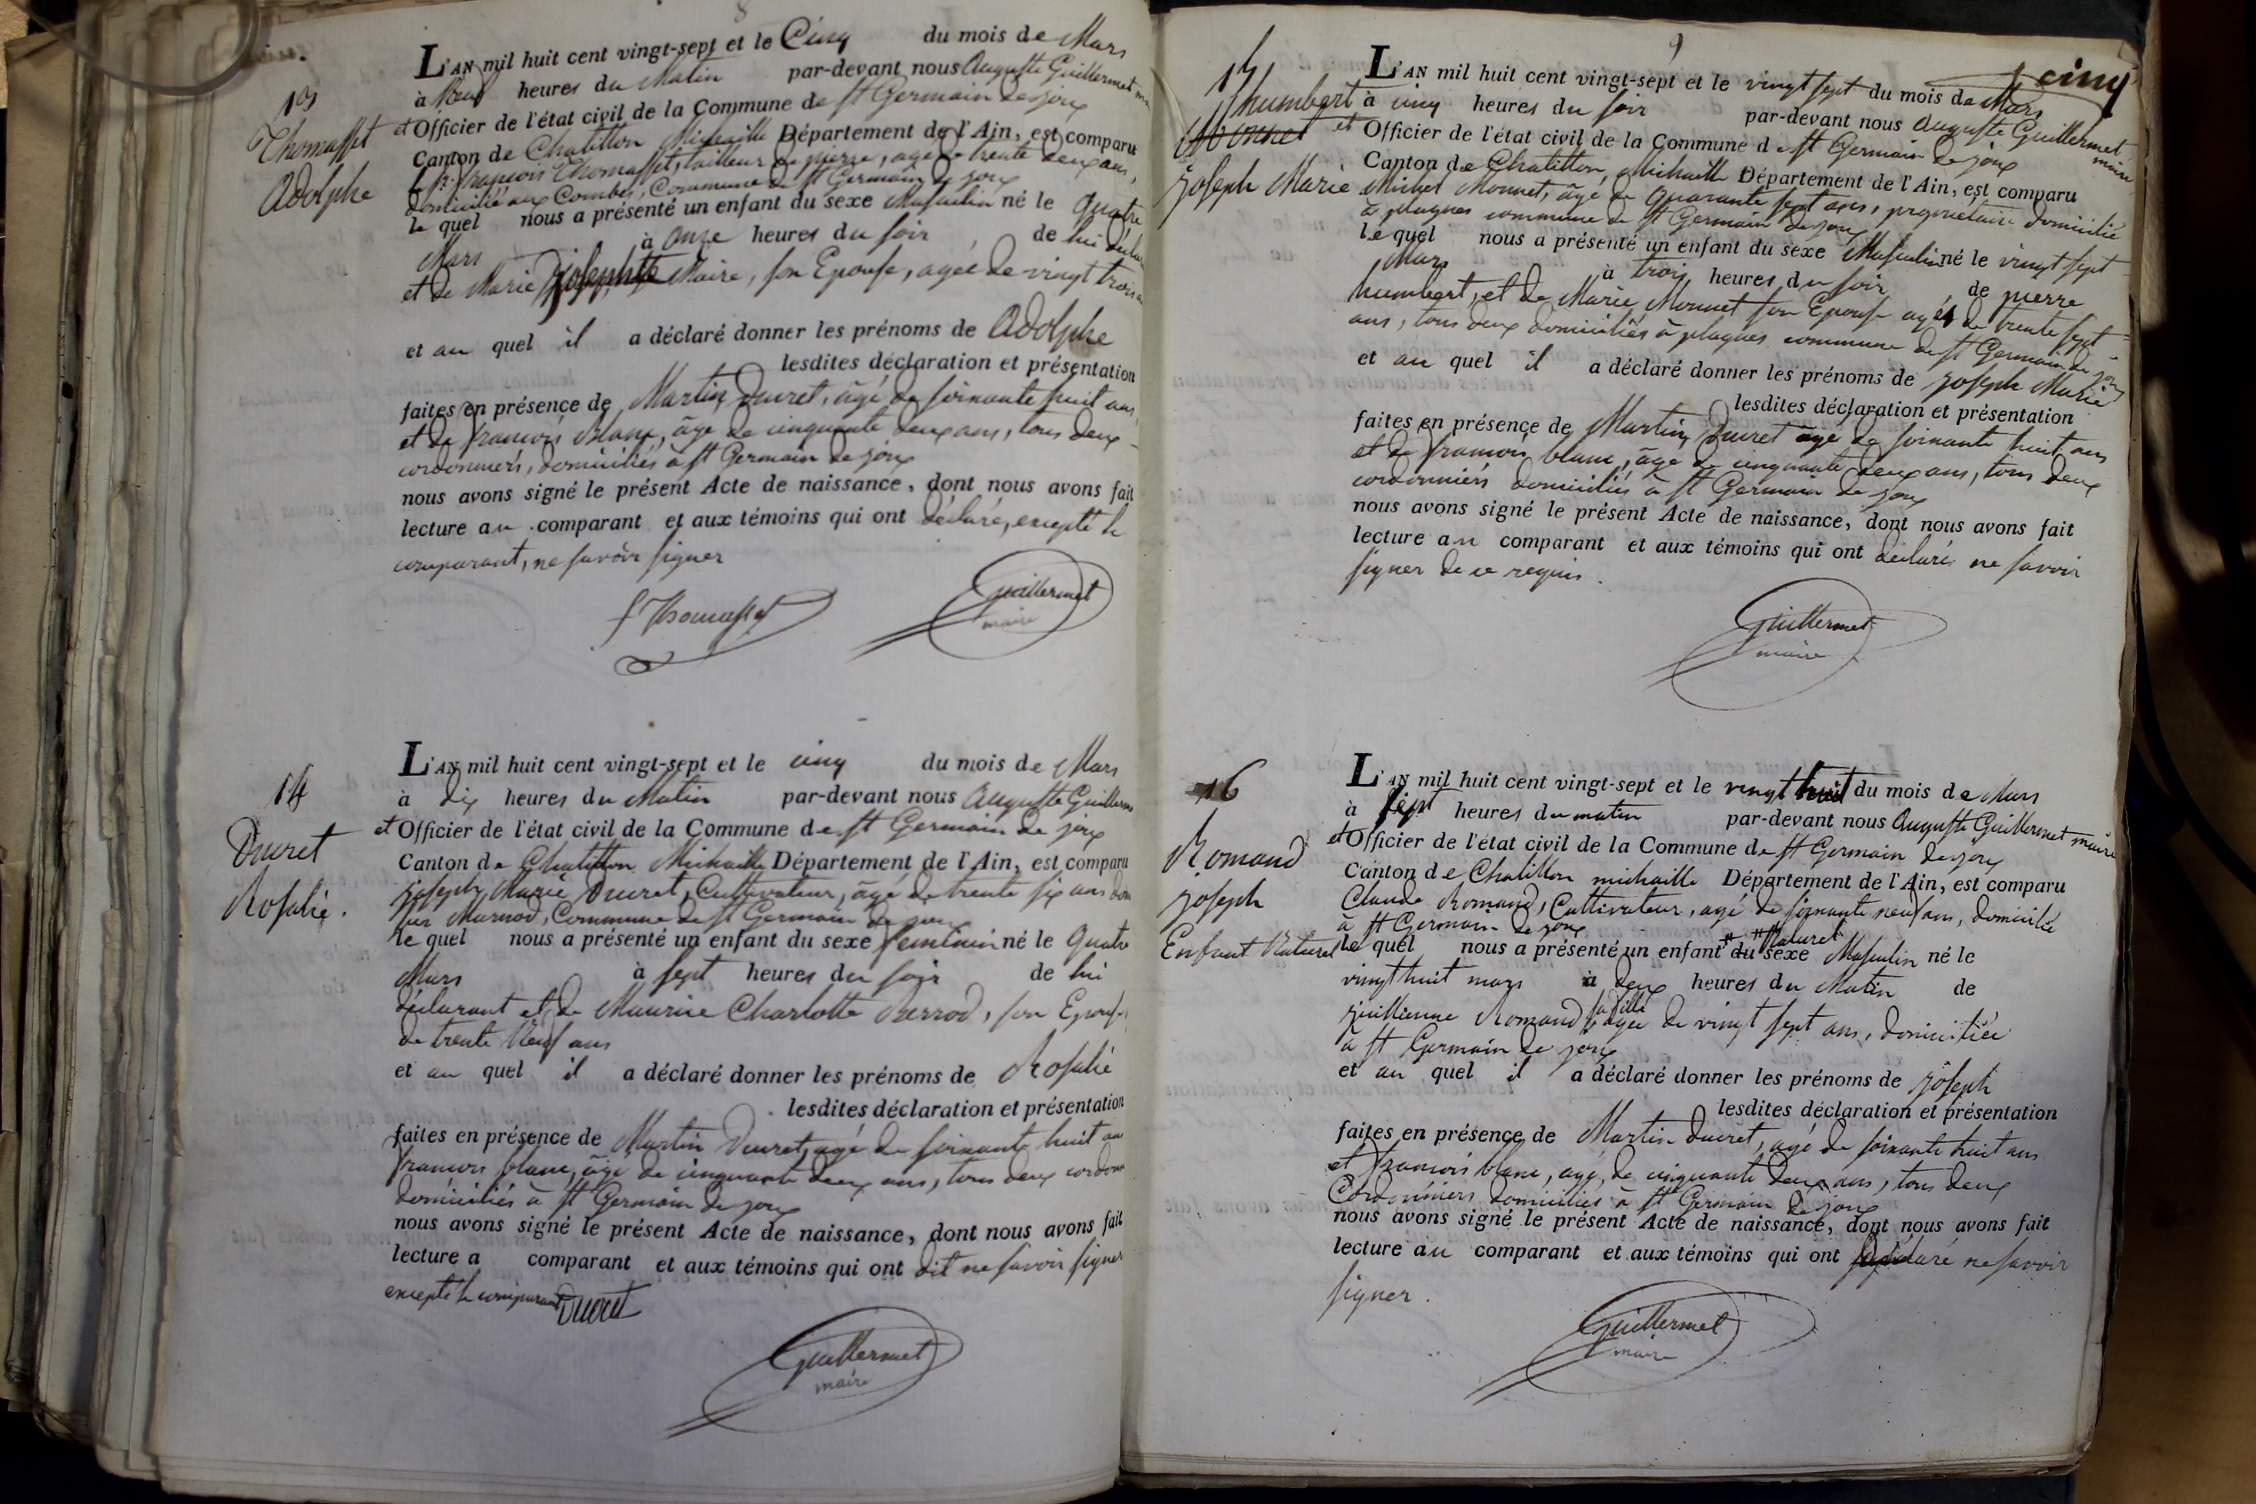 8
13
Thomasset
Adolphe
L'AN mil huit cent vingt-sept et le Cinq du mois de Mars
à Neuf heures du Matin par-devant nous Auguste Guillermet
et Officier de l'état civil de la Commune de St Germain de joux
Canton de Chatillon Michaille Département de l'Ain, est comparu
françois Thomasset, tailleur de pierre, agé de trente deux ans,
domicilié aux Combes, Commune de St Germain de joux
le quel nous a présenté un enfant du sexe Masculin né le quatre
Mars à onze heures du soir, de lui déclarant
et de Marie josephte Maire, son Epouse, agée de vingt trois
et au quel il a déclaré donner les prénoms de Adolphe
lesdites déclaration et présentation
faites en présence de Martin Ducret, âgé de soixante huit ans,
et de françois Blanc, âgé de cinquante deux ans, tous deux
cordonniers, domiciliés à St Germain de joux
nous avons signé le présent Acte de naissance, dont nous avons fait
lecture au comparant et aux témoins qui ont déclaré, excepté le
comparant, ne savoir signer
f Thomasset
Guillermet
maire
14
Ducret
Rosalie.
L'AN mil huit cent vingt-sept et le cinq du mois de Mars
à dix heures du Matin par-devant nous Auguste Guillermet
et Officier de l'état civil de la Commune de St Germain de joux
Canton de Chatillon Michaille Département de l'Ain, est comparu
joseph Marie Ducret, Cultivateur, âgé de trente six ans
sur Marnod, Commune de St Germain de joux
le quel nous a présenté un enfant du sexe feminin né le quatre
Mars à sept heures du soir de lui
déclarant et de Maurice Charlotte Berrod, son Epouse
de trente Neuf ans
et au quel il a déclaré donner les prénoms de Rosalie
lesdites déclaration et présentation
faites en présence de Martin Ducret, agé de soixante huit ans
françois blanc, âgé de cinquante deux ans, tous deux
domiciliés à St Germain de joux
nous avons signé le présent Acte de naissance, dont nous avons fait
lecture a comparant et aux témoins qui ont dit ne savoir signer
excepté le comparant Ducret
Guillermet
maire
9
cinq
15
humbert
Monnet
joseph Marie
L'AN mil huit cent vingt-sept et le vingt sept du mois de Mars
à cinq heures du soir par-devant nous Auguste Guillermet maire
et Officier de l'état civil de la Commune de St Germain de joux
Canton de Chatillon Michaille Département de l'Ain, est comparu
Michel Monnet, âgé de quarante sept ans, propriétaire domicilié
à plagnes commune de St Germain de joux
le quel nous a présenté un enfant du sexe Masculin né le vingt sept
Mars à trois heures du soir, de pierre
humbert, et de Marie Monnet son Epouse agés de trente sept
ans, tous deux domiciliés à plagnes commune de St Germain de joux
et au quel il a déclaré donner les prénoms de joseph Marie
lesdites déclaration et présentation
faites en présence de Martin Ducret âgé de soixante huit ans
et de françois blanc, âgé de cinquante deux ans, tous deux
cordonniers domiciliés à St Germain de joux
nous avons signé le présent Acte de naissance, dont nous avons fait
lecture au comparant et aux témoins qui ont déclaré ne savoir
signer de ce requis.
Guillermet
maire
16
Romand
joseph
Enfant Naturel
L'AN mil huit cent vingt-sept et le vingt huit du mois de Mars
à sept heures du matin par-devant nous Auguste Guillermet maire
et Officier de l'état civil de la Commune de St Germain de joux
Canton de Chatillon michaille Département de l'Ain, est comparu
Claude Romand, Cultivateur, agé de soixante neuf ans, domicilié
à St Germain de joux
le quel nous a présenté un enfant Naturel du sexe Masculin né le
vingt huit mars à deux heures du Matin de
guillienne Romand sa fille, agée de vingt sept ans, domiciliée
à St Germain de joux
et au quel il a déclaré donner les prénoms de joseph
lesdites déclaration et présentation
faites en présence de Martin ducret, agé de soixante huit ans
et françois blanc, agé, de cinquante deux ans, tous deux
Cordonniers domiciliés à St Germain de joux
nous avons signé le présent Acte de naissance, dont nous avons fait
lecture au comparant et aux témoins qui ont déclaré ne savoir
signer.
Guillermet
maire